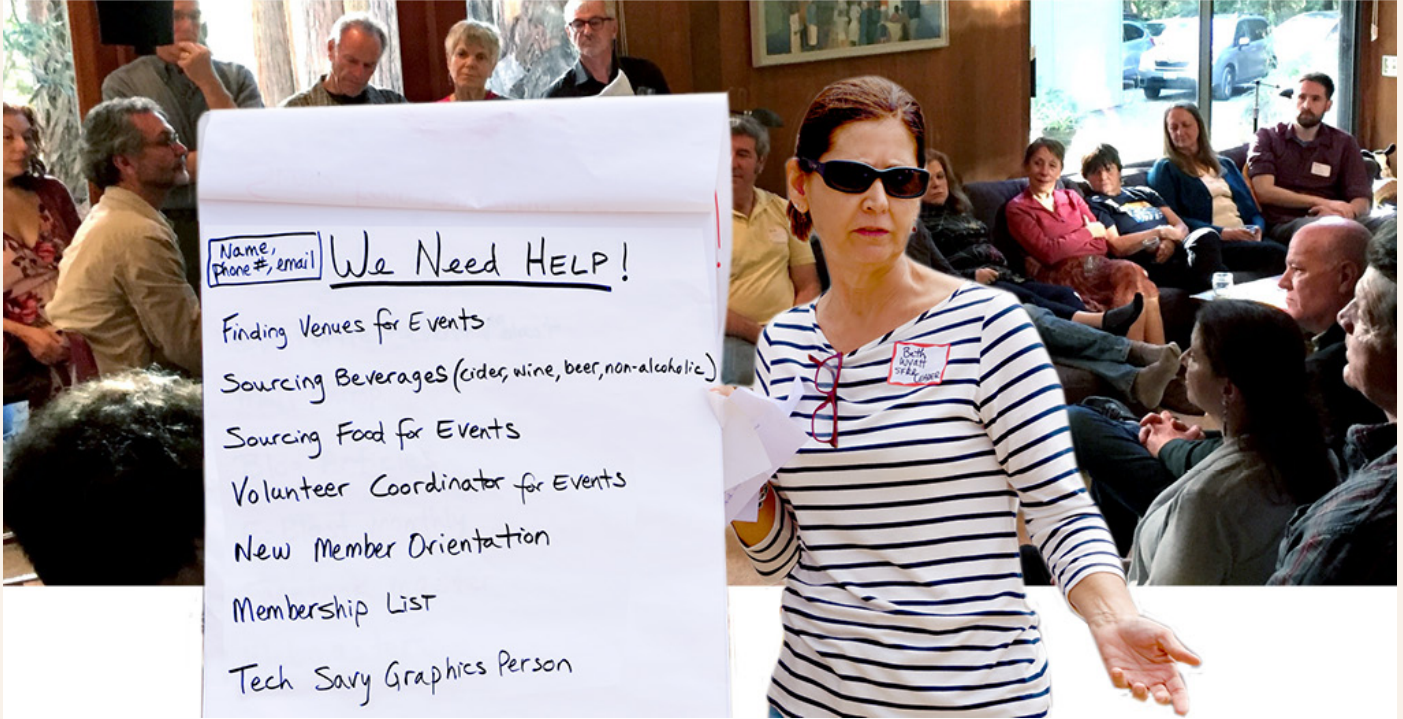 Name,
phone #, email
We Need HELP!
Finding Venues for Events
Sourcing Beverages (cider, wine, beer, non-alcoholic)
Sourcing Food for Events
Volunteer Coordinator for Events
New Member Orientation
Membership List
Tech Savy Graphics Person
Beth
Wyatt